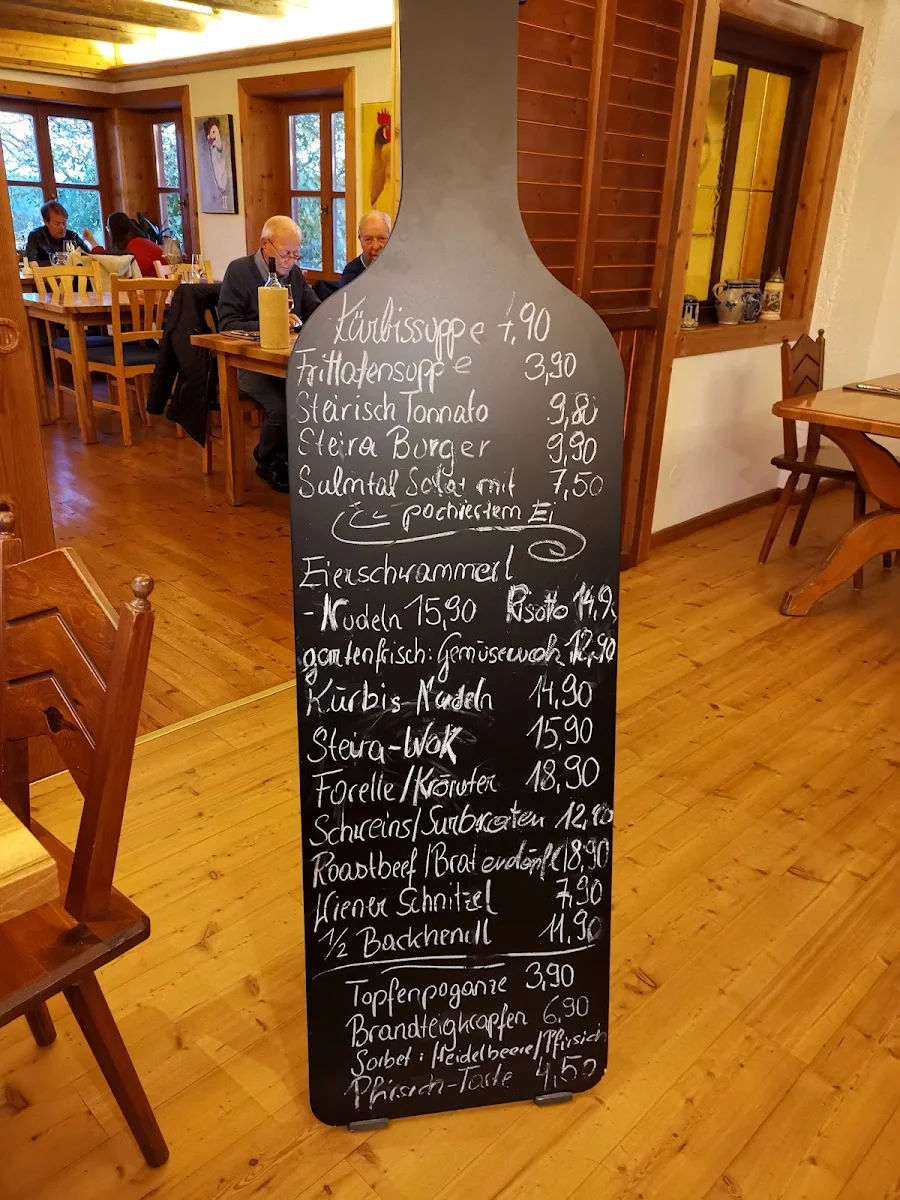 Kürbissuppe 4,90
Frittatensuppe 3,90
Steirisch Tonnato 9,80
Steira Burger 9,90
Sulmtal Salat mit 7,50
pochiertem Ei
Eierschwammerl
-Nudeln 15,90 Risotto 14,9
gartenfrisch: Gemüsewok 12,90
Kürbis-Nudeln 14,90
Steira-Wok 15,90
Forelle/Kräuter 18,90
Schweins/Surbraten 12,90
Roastbeef/Braterdäpfel 18,90
Wiener Schnitzel 7,90
1/2 Backhendl 11,90
Topfenpoganze 3,90
Brandteigkrapfen 6,90
Sorbet: Heidelbeere/Pfirsich
Pfirsich-Torte 4,50